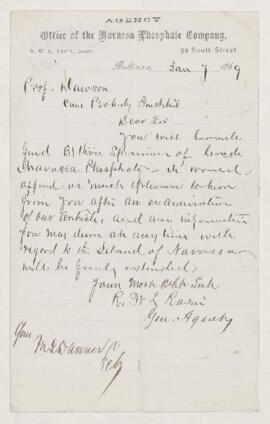 AGENCY
Office of the Navassa Phosphate Company.
32 South Street
Jan 7 1869
Prof. Dawson
Care Peabody Institute
Dear Sir
You will herewith
find specimen of
Navassa Phosphate it would
afford us much pleasure to hear
from you after an examination
of our article, and any information
you may desire at any time with
regard to the Island of Navassa
will be freely extended
Your Most Obt
R. W. L. Rasin
Gen. Agent